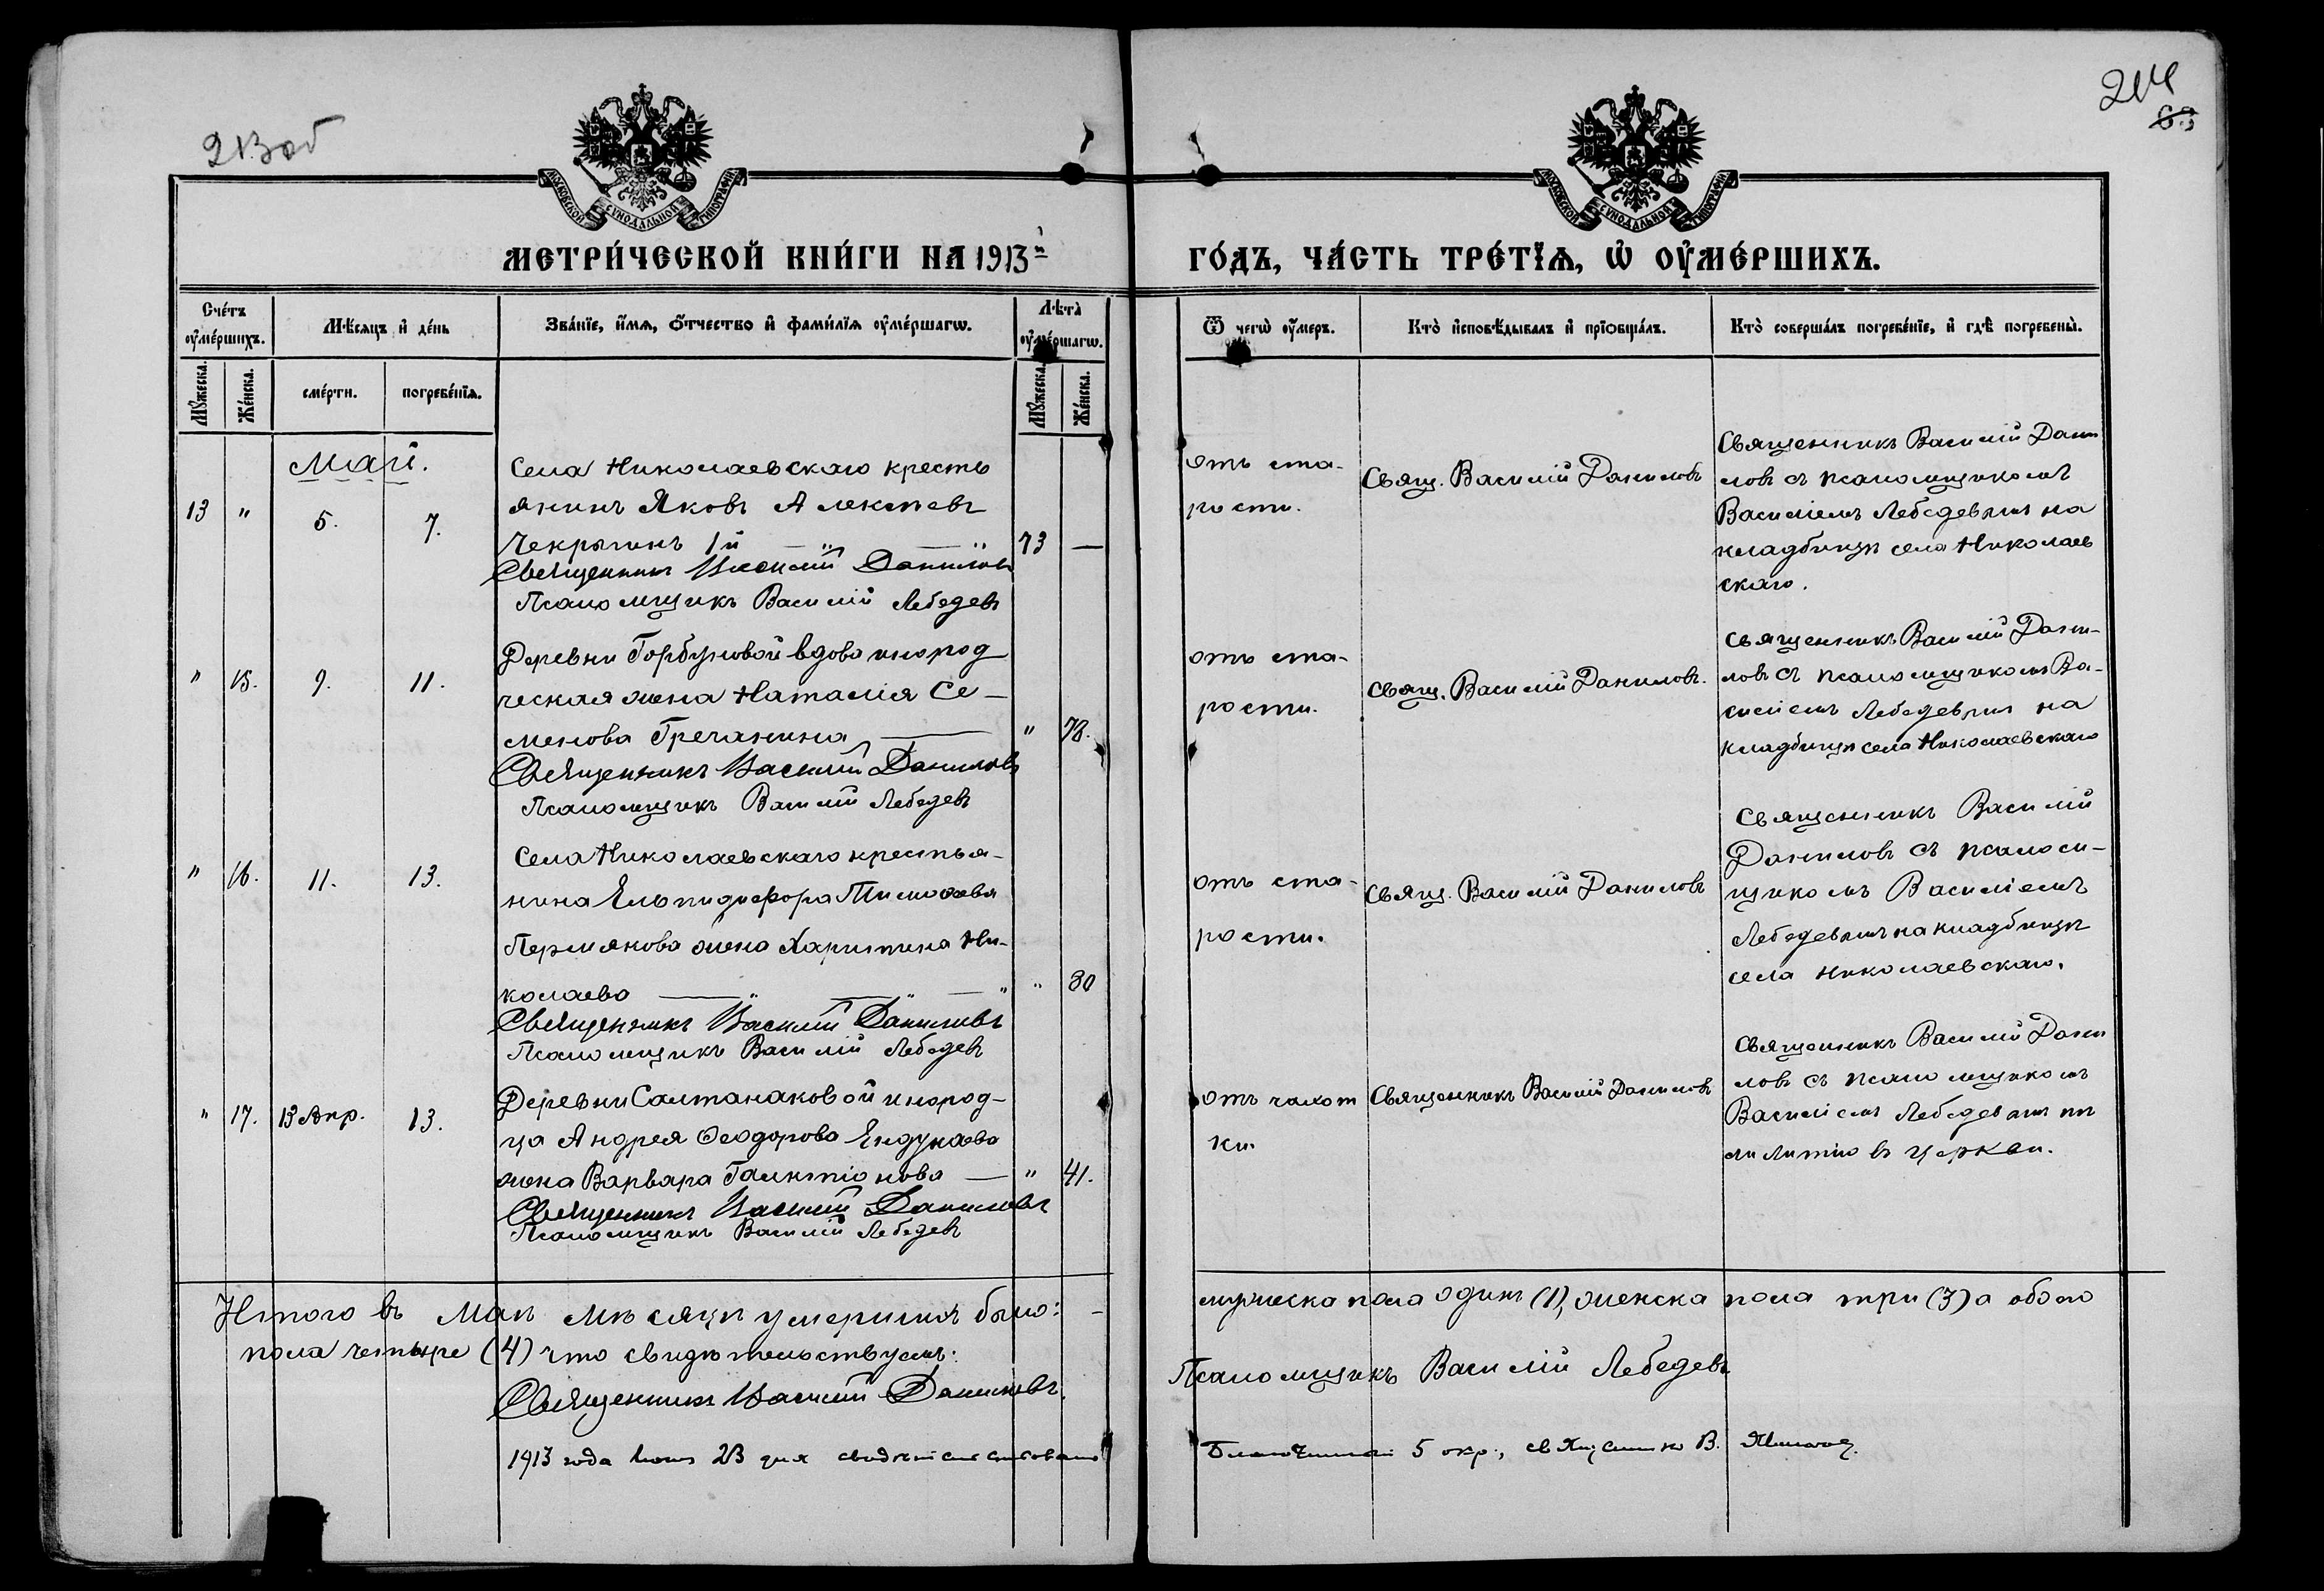 213 об
214
63
МОСКОВСКОЙ СѴНОДАЛЬНОЙ ТИПОГРАФІИ
МОСКОВСКОЙ СѴНОДАЛЬНОЙ ТИПОГРАФІИ
МЕТРИ́ЧЕСКОЙ КНИ́ГИ НА 1913й
ГО́ДЪ, ЧА́СТЬ ТРЕ́ТЇѦ, Ѡ҆ ОУ҆МЕ́РШИХЪ.
Сче́тъ
оу҆ме́ршихъ.
Мѣ́сяцъ и҆ де́нь
Зва́нїе, и҆́мѧ, ѻ҆́тчество и҆ фами́лїѧ оу҆ме́ршагѡ.
Лѣ́та
оу҆ме́ршагѡ.
Ѿ чегѡ̀ оу҆́меръ.
Кто̀ и҆сповѣ́дывалъ и҆ прїѡбща́лъ.
Кто̀ соверша́лъ погребе́нїе, и҆ гдѣ̀ погребены̀.
Мꙋ́жеска.
Же́нска.
сме́рти.
погребе́нїѧ.
Мꙋ́жеска.
Же́нска.
Май.
13 " 5. 7.
Села Николаевскаго кресть
янинъ Яковъ Алексѣевъ
Чекрыгинъ 1й — " — " 73 —
Священникъ Василій Даниловъ
Псаломщикъ Василій Лебедевъ
отъ ста-
рости.
Свящ. Василій Даниловъ
Священникъ Василій Дани
ловъ съ псаломщикомъ
Василіемъ Лебедевымъ на
кладбищѣ села Николаев
скаго.
" 15. 9. 11.
Деревни Горбуновой вдова инород
ческая жена Наталія Се-
менова Гречанина — " 78.
Священникъ Василій Даниловъ
Псаломщикъ Василій Лебедевъ
отъ ста-
рости.
Свящ. Василій Даниловъ.
Священникъ Василій Дани-
ловъ съ псаломщикомъ Ва-
силіемъ Лебедевымъ на
кладбищѣ села Николаевскаго
" 16. 11. 13.
Села Николаевскаго крестья-
нина Елпидифора Тимофеева
Пермякова жена Харитина Ни-
колаева — " — " — " " 80
Священникъ Василій Даниловъ
Псаломщикъ Василій Лебедевъ
отъ ста-
рости.
Свящ. Василій Даниловъ
Священникъ Василій
Даниловъ съ псалом-
щикомъ Василіемъ
Лебедевымъ на кладбищѣ
села Николаевскаго.
" 17. 13 Апр. 13.
Деревни Салтанаковой инород-
ца Андрея Ѳеодорова Ендукаева
жена Варвара Галактіонова — " 41.
Священникъ Василій Даниловъ
Псаломщикъ Василій Лебедевъ
отъ чахот
ки.
Священникъ Василій Даниловъ
Священникъ Василій Дани
ловъ съ псаломщикомъ
Василіемъ Лебедевымъ
въ церкви.
Итого въ Маѣ мѣсяцѣ умершихъ было: -
мужеска пола одинъ (1), женска пола три (3) а обоего
пола четыре (4) что свидѣтельствуемъ:
Священникъ Василій Даниловъ.
Псаломщикъ Василій Лебедевъ
1913 года 23 дня
Благочинный 5 окр., священникъ В.